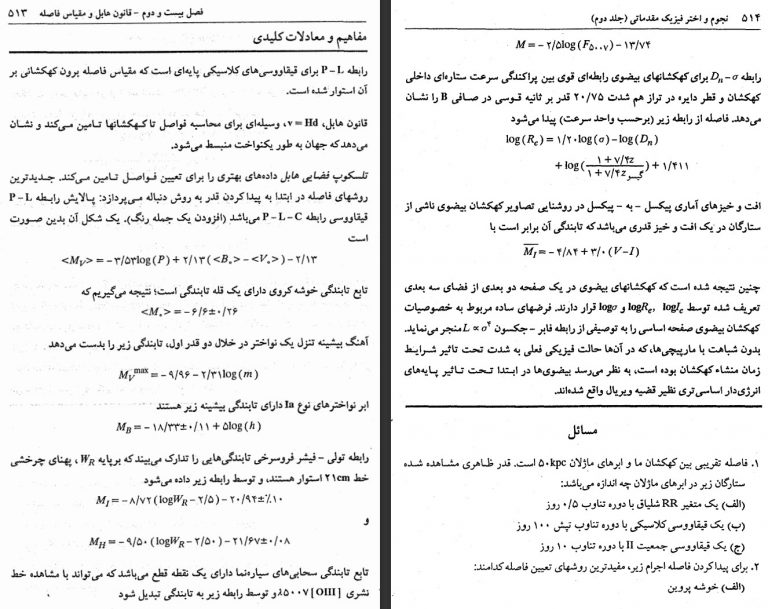 فصل بیست و دوم – قانون هابل و مقیاس فاصله ۵۱۳
مفاهیم و معادلات کلیدی
رابطه P – L برای قیفاووسی‌های کلاسیکی پایه‌ای است که مقیاس فاصله برون کهکشانی بر
آن استوار شده است.
قانون هابل، v = Hd، وسیله‌ای برای محاسبه فواصل تا کهکشانها تامین می‌کند و نشان
می‌دهد که جهان به طور یکنواخت منبسط می‌شود.
تلسکوپ فضایی هابل داده‌های بهتری را برای تعیین فواصل تامین می‌کند. جدیدترین
روشهای فاصله در ابتدا به پیدا کردن قدر به روش دنباله می‌پردازد: پالایش رابطه P – L
قیفاووسی رابطه P – L – C می‌باشد (افزودن یک جمله رنگ). یک شکل آن بدین صورت
است
<M_V> = –۳/۵۳log(P) + ۲/۱۳(<B۰> – <V۰>) – ۲/۱۳
تابع تابندگی خوشه کروی دارای یک قله تابندگی است؛ نتیجه می‌گیریم که
<M۰> = –۶/۶±۰/۲۶
آهنگ بیشینه تنزل یک نواختر در خلال دو قدر اول، تابندگی زیر را بدست می‌دهد
M_V^max = –۹/۹۶ – ۲/۳۱log(ṁ)
ابر نواخترهای نوع Ia دارای تابندگی بیشینه زیر هستند
M_B = –۱۸/۳۳±۰/۱۱ + ۵log(h)
رابطه تولی – فیشر فروسرخی تابندگی‌هایی را تدارک می‌بیند که برپایه W_R، پهنای چرخشی
خط ۲۱cm استوار هستند، و توسط رابطه زیر داده می‌شود
M_I = –۸/۷۲(logW_R – ۲/۵) – ۲۰/۹۴±٪۱۰
و
M_H = –۹/۵۰(logW_R – ۲/۵۰) – ۲۱/۶۷±۰/۰۸
تابع تابندگی سحابی‌های سیاره‌نما دارای یک نقطه قطع می‌باشد که می‌تواند با مشاهده خط
نشری [OIII] λ۵۰۰۷ و توسط رابطه زیر به تابندگی تبدیل شود
۵۱۴ نجوم و اختر فیزیک مقدماتی (جلد دوم)
M = –۲/۵log(F۵۰۰۷) –۱۳/۷۴
رابطه D_n – σ برای کهکشانهای بیضوی رابطه‌ای قوی بین پراکندگی سرعت ستاره‌ای داخلی
کهکشان و قطر دایره در تراز هم شدت ۲۰/۷۵ قدر بر ثانیه قوسی در صافی B را نشان
می‌دهد. فاصله از رابطه زیر (برحسب واحد سرعت) پیدا می‌شود
log(R_e) = ۱/۲۰log(σ) – log(D_n)
+ log(۱ + ۷/۴z / ۱ + ۷/۴z گیسو) + ۱/۴۱۱
افت و خیزهای آماری پیکسل – به – پیکسل در روشنایی تصاویر کهکشان بیضوی ناشی از
ستارگان در یک افت و خیز قدری می‌باشد که تابندگی آن برابر است با
M_I = –۴/۸۴ + ۳/۰(V–I)
چنین نتیجه شده است که کهکشانهای بیضوی در یک صفحه دو بعدی از فضای سه بعدی
تعریف شده توسط logR_e، logI_e و logσ قرار دارند. فرضهای ساده مربوط به خصوصیات
کهکشان بیضوی صفحه اساسی را به توصیفی از رابطه فابر – جکسون L ∝ σ⁴ منجر می‌نماید.
بدون شباهت با مارپیچی‌ها، که در آن‌ها حالت فیزیکی فعلی به شدت تحت تاثیر شرایط
زمان منشاء کهکشان بوده است، به نظر می‌رسد بیضوی‌ها در ابتدا تحت تاثیر پایه‌های
انرژی‌دار اساسی‌تری نظیر قضیه ویریال واقع شده‌اند.
مسائل
۱. فاصله تقریبی بین کهکشان ما و ابرهای ماژلان ۵۰kpc است. قدر ظاهری مشاهده شده
ستارگان زیر در ابرهای ماژلان چه اندازه می‌باشد:
(الف) یک متغیر RR شلیاق با دوره تناوب ۰/۵ روز
(ب) یک قیفاووسی کلاسیکی با دوره تناوب تپش ۱۰۰ روز
(ج) یک قیفاووسی جمعیت II با دوره تناوب ۱۰ روز
۲. برای پیدا کردن فاصله اجرام زیر، مفیدترین روشهای تعیین فاصله کدامند:
(الف) خوشه پروین